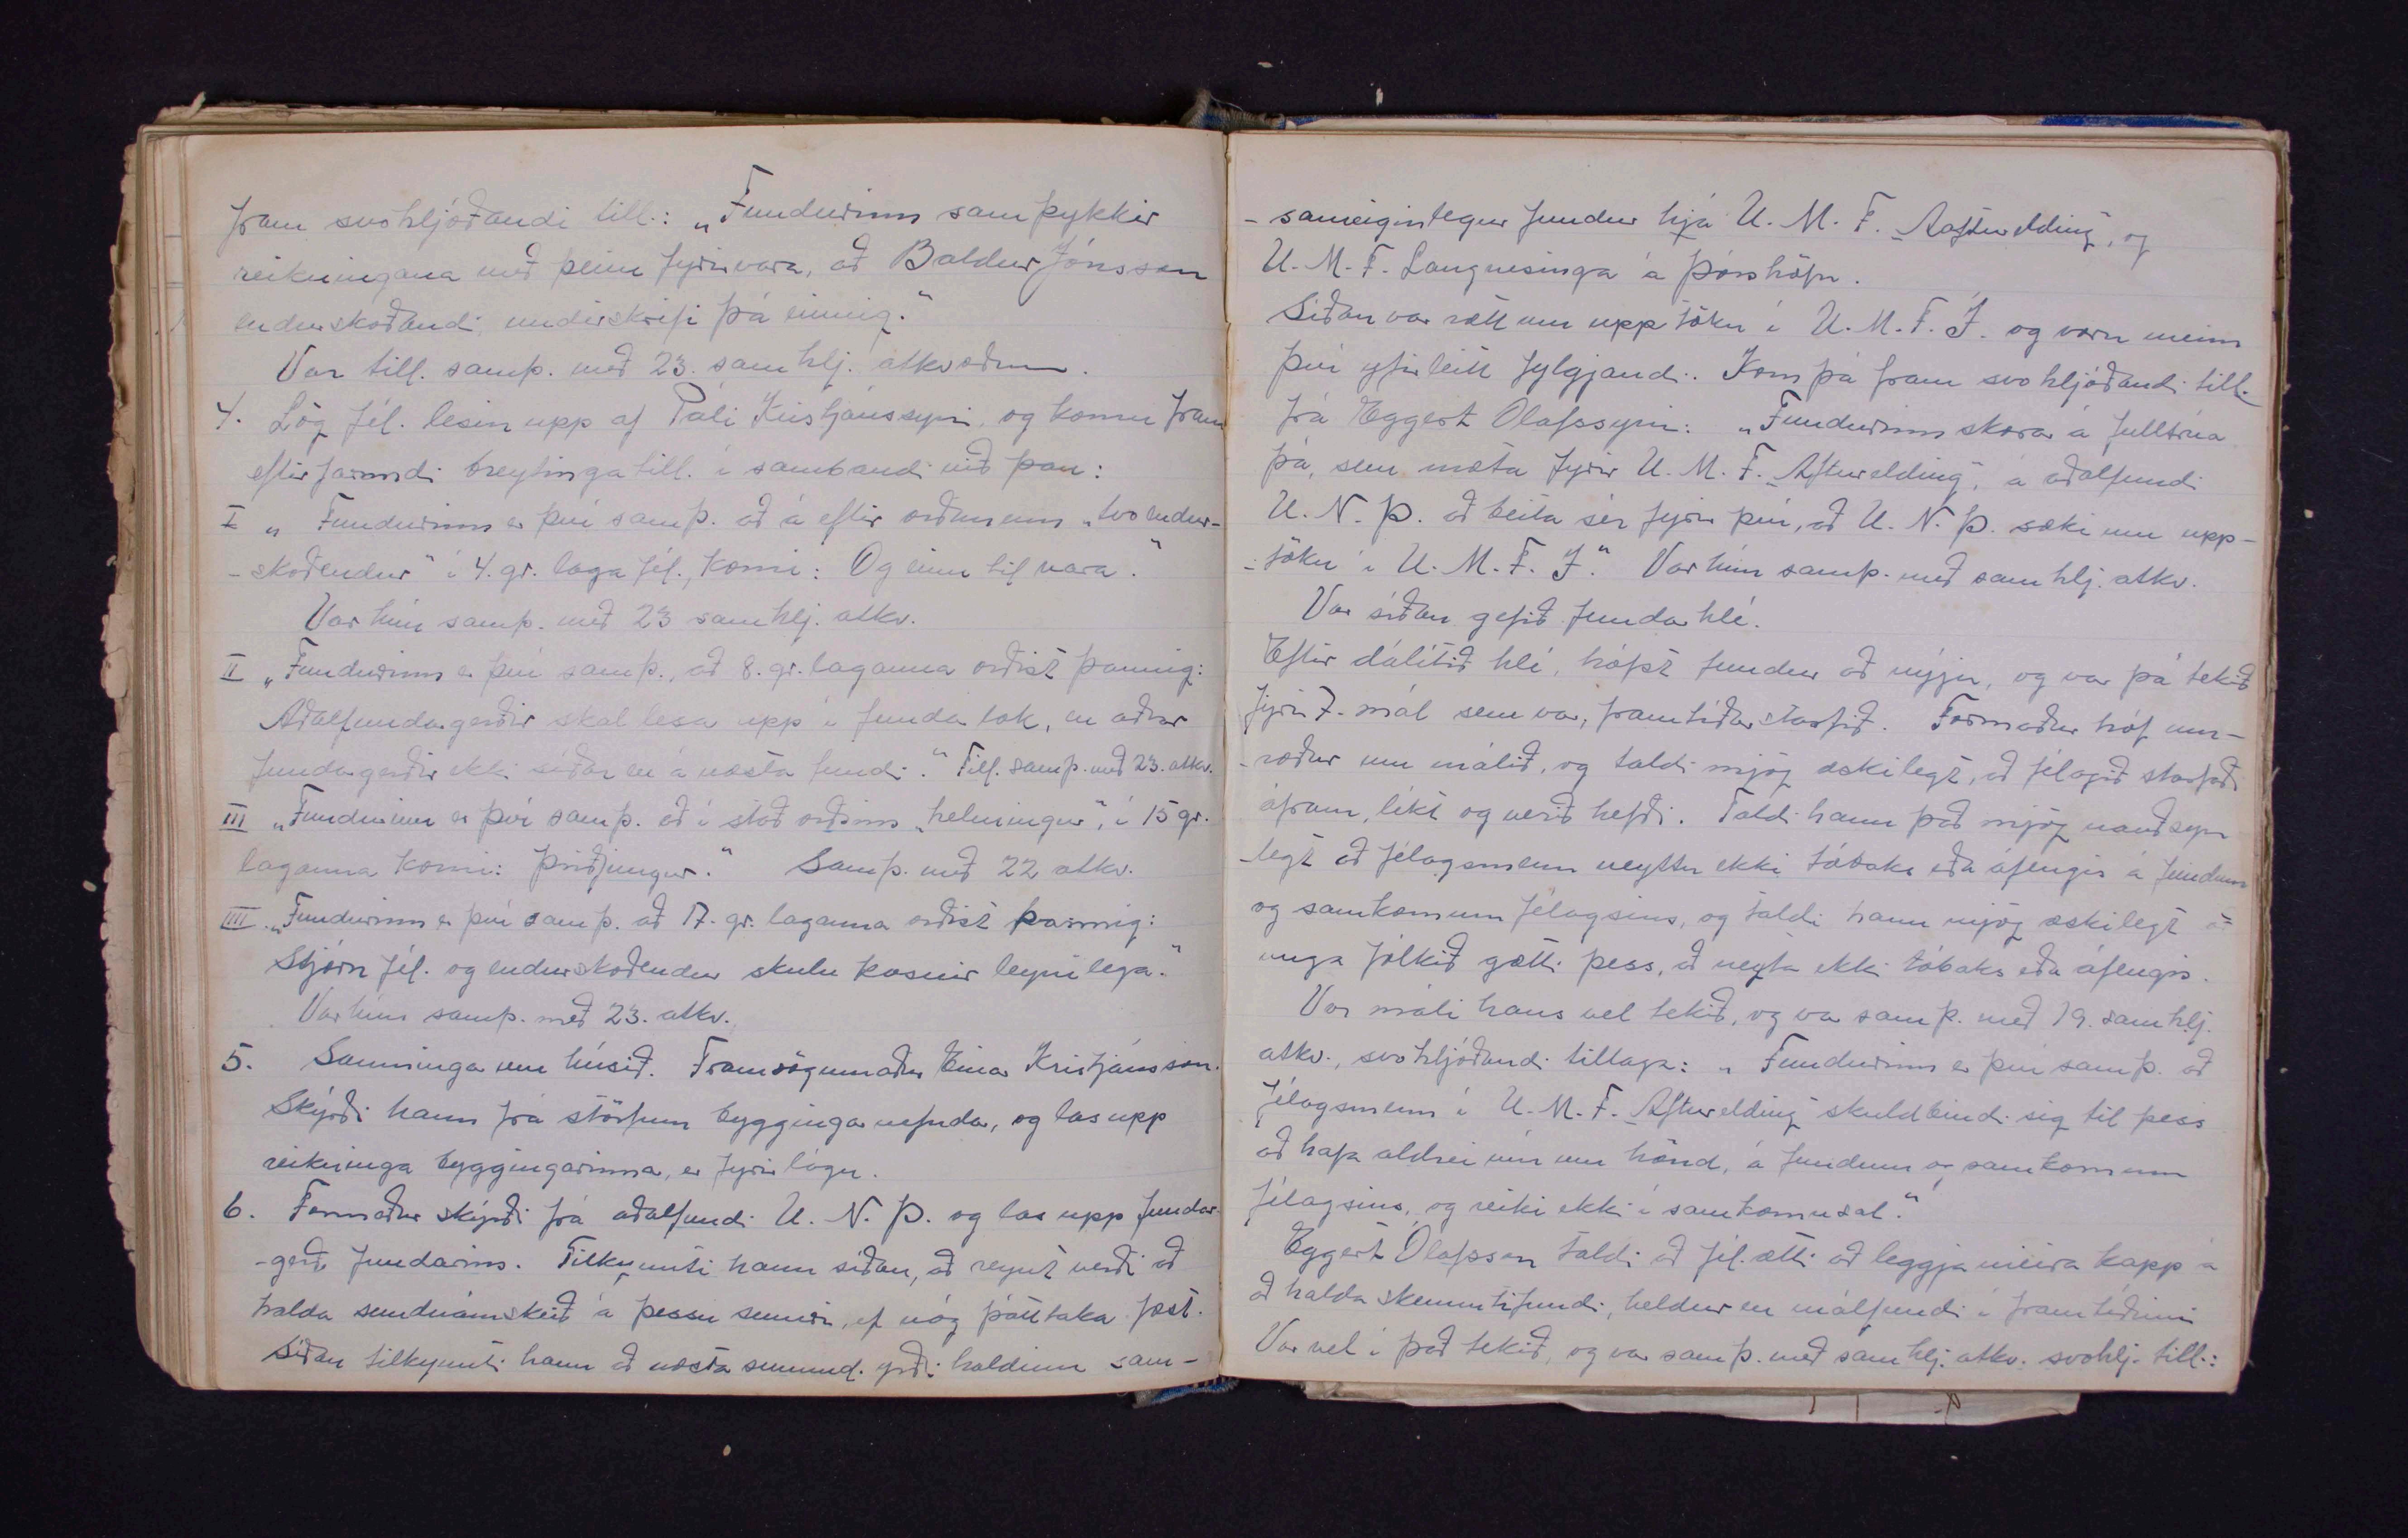 fram svohljóðandi till.: „Fundurinn samþykkir
reikningana með þeim fyrirvara, að Baldur Jónsson
endurskoðandi, undirskrifi þá einnig."
Var till. samþ. með 23. samhlj. atkvæðum.
4. Lög fél. lesin upp af Páli Kristjánssyni, og komu fram
eftirfarandi breytingatill. í sambandi við þau:
I „Fundurinn er því samþ. að á eftir orðunum „tvo endur-
-skoðendur" í 4. gr. laga fél., komi: Og einn til vara."
Var hún samþ. með 23 samhlj. atkv.
II „Fundurinn er því samþ., að 8. gr. laganna orðist þannig:
Aðalfundagerðir skal lesa upp í funda lok, en aðrar
fundagerðir ekki síðar en á næsta fundi." Till. samþ. með 23. atkv.
III „Fundurinn er því samþ. að í stað orðsins „helmingur", í 15 gr.
laganna komi: þriðjungur." Samþ. með 22 atkv.
IIII. „Fundurinn er því samþ. að 17. gr. laganna orðist þannig:
Stjórn fél. og endurskoðendur skulu kosnir leynilega."
Var hún samþ. með 23. atkv.
5. Samninga um húsið. Framsögumaður Einar Kristjánsson.
Skýrði hann frá störfum bygginganefndar, og las upp
reikninga byggingarinnar, er fyrir lágu.
6. Formaður skýrði frá aðalfundi U. N. Þ. og las upp fundar-
-gerð fundarins. Tilkynnti hann síðan, að reynt verði að
halda sundnámskeið á þessu sumri, ef nóg þátttaka fæst.
Síðan tilkynnti hann að næsta sunnud. yrði haldinn sam-
- sameiginlegur fundur hjá U. M. F. „Aafturelding", og
U. M. F. Langnesinga á Þórshöfn.
Síðan var rætt um upptöku í U. M. F. Í. og voru menn
því yfirleitt fylgjandi. Kom þá fram svohljóðandi till.
frá Eggert Ólafssyni: „Fundurinn skorar á fulltrúa
þá, sem mæta fyrir U. M. F. „Afturelding", á aðalfundi
U. N. Þ. að beita sér fyrir því, að U. N. Þ. sæki um upp-
-töku í U. M. F. Í." Var hún samþ. með samhlj. atkv.
Var síðan gefið fundarhlé.
Eftir dálítið hlé, hófst fundur að nýju, og var þá tekið
fyrir 7. mál sem var, framtíðarstarfið. Formaður hóf um-
-ræður um málið, og taldi mjög æskilegt, að félagið starfaði
áfram, líkt og verið hefði. Taldi hann það mjög nauðsyn
-legt að félagsmenn neyttu ekki tóbaks eða áfengis á fundum
og samkomum félagsins, og taldi hann mjög æskilegt að
unga fólkið gætti þess, að neyta ekki tóbaks eða áfengis.
Var máli hans vel tekið, og var samþ. með 19. samhlj.
atkv., svohljóðandi tillaga: „Fundurinn er því samþ. að
félagsmenn í U. M. F. „Afturelding" skuldbindi sig til þess
að hafa aldrei vín um hönd, á fundum og samkomum
félagsins, og reiki ekki í samkomusal."
Eggert Ólafsson taldi að fél. ætti að leggja meira kapp á
að halda skemmtifundi, heldur en málfundi í framtíðinni
Var vel í það tekið, og var samþ. með samhlj. atkv. svohlj. till.: